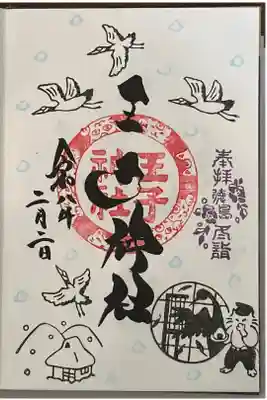 奉拝 徳島 詣
王子神社
王子神社
令和 年
二月二日